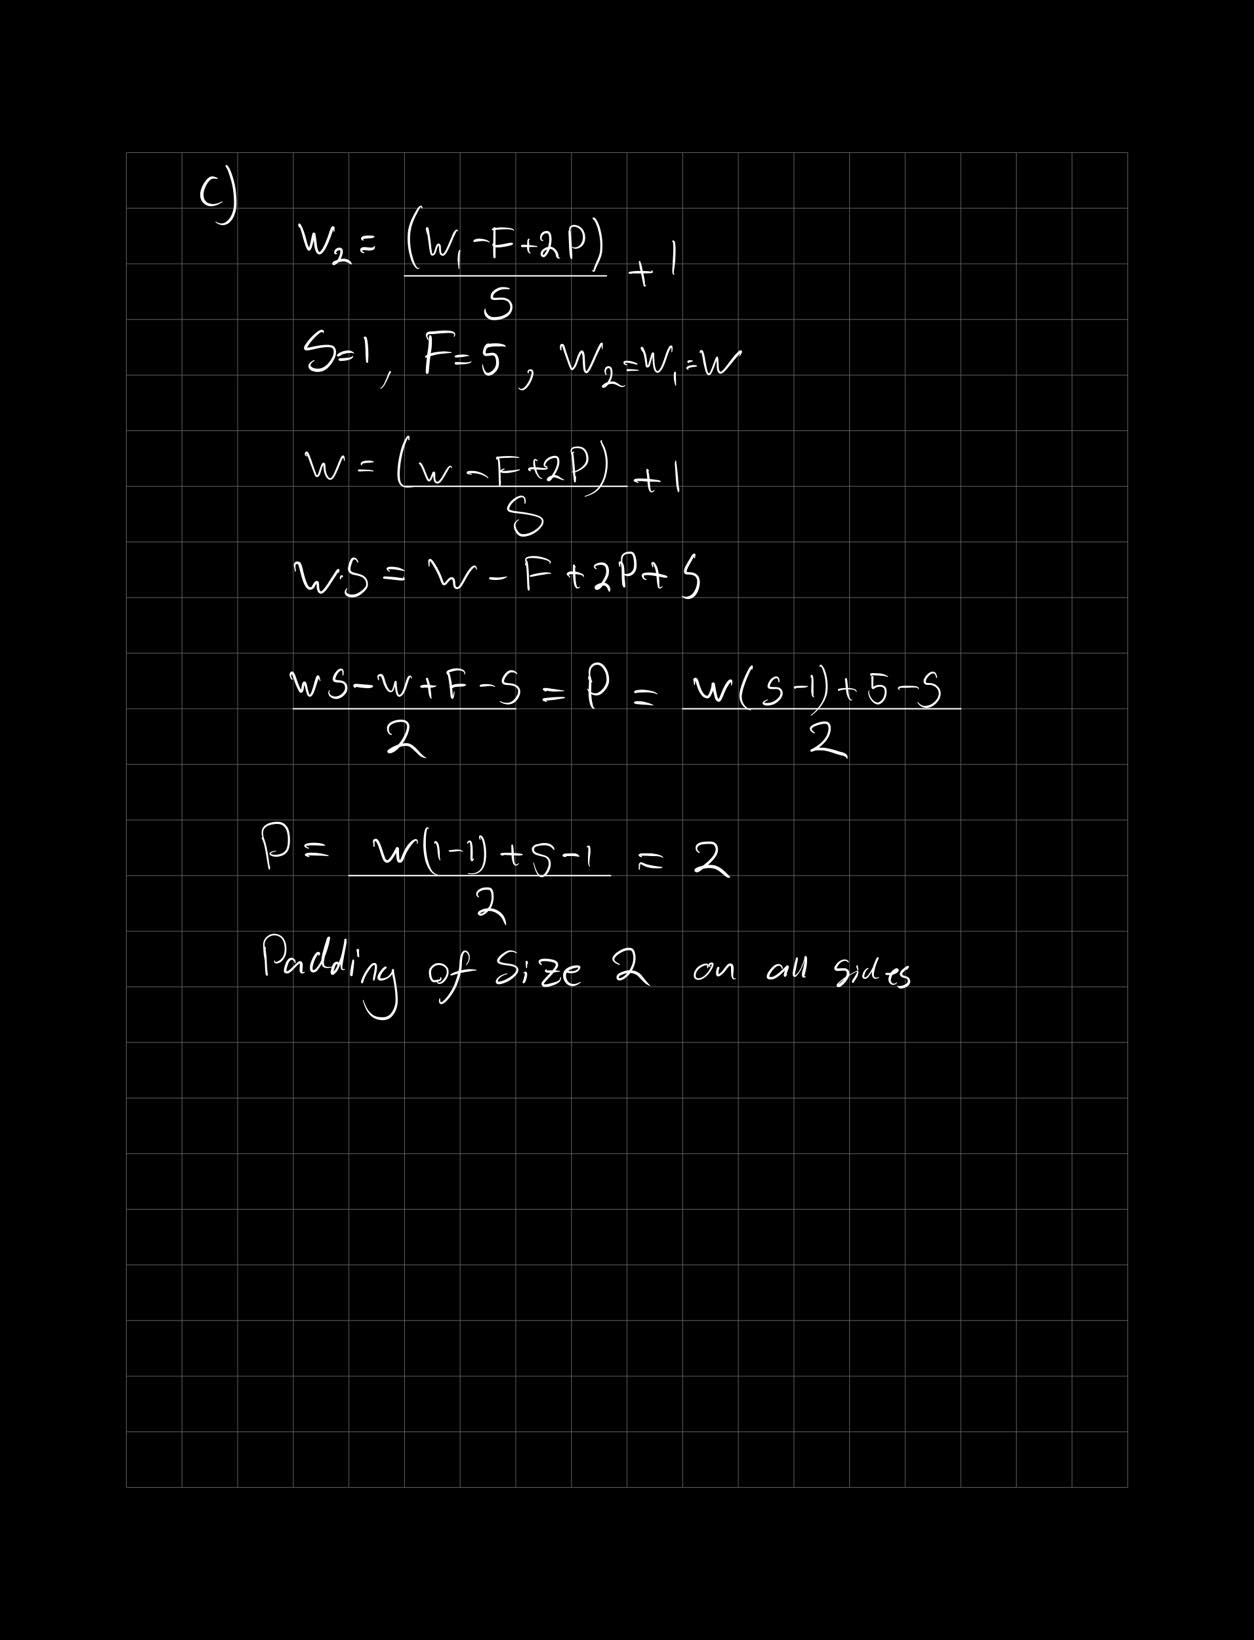 c)
W₂ = (W₁ - F + 2P) / S + 1
S=1, F=5, W₂=W₁=W
W = (W - F + 2P) / S + 1
W·S = W - F + 2P + S
(WS - W + F - S) / 2 = P = (W(S-1) + 5 - S) / 2
P = (W(1-1) + 5 - 1) / 2 = 2
Padding of Size 2 on all sides